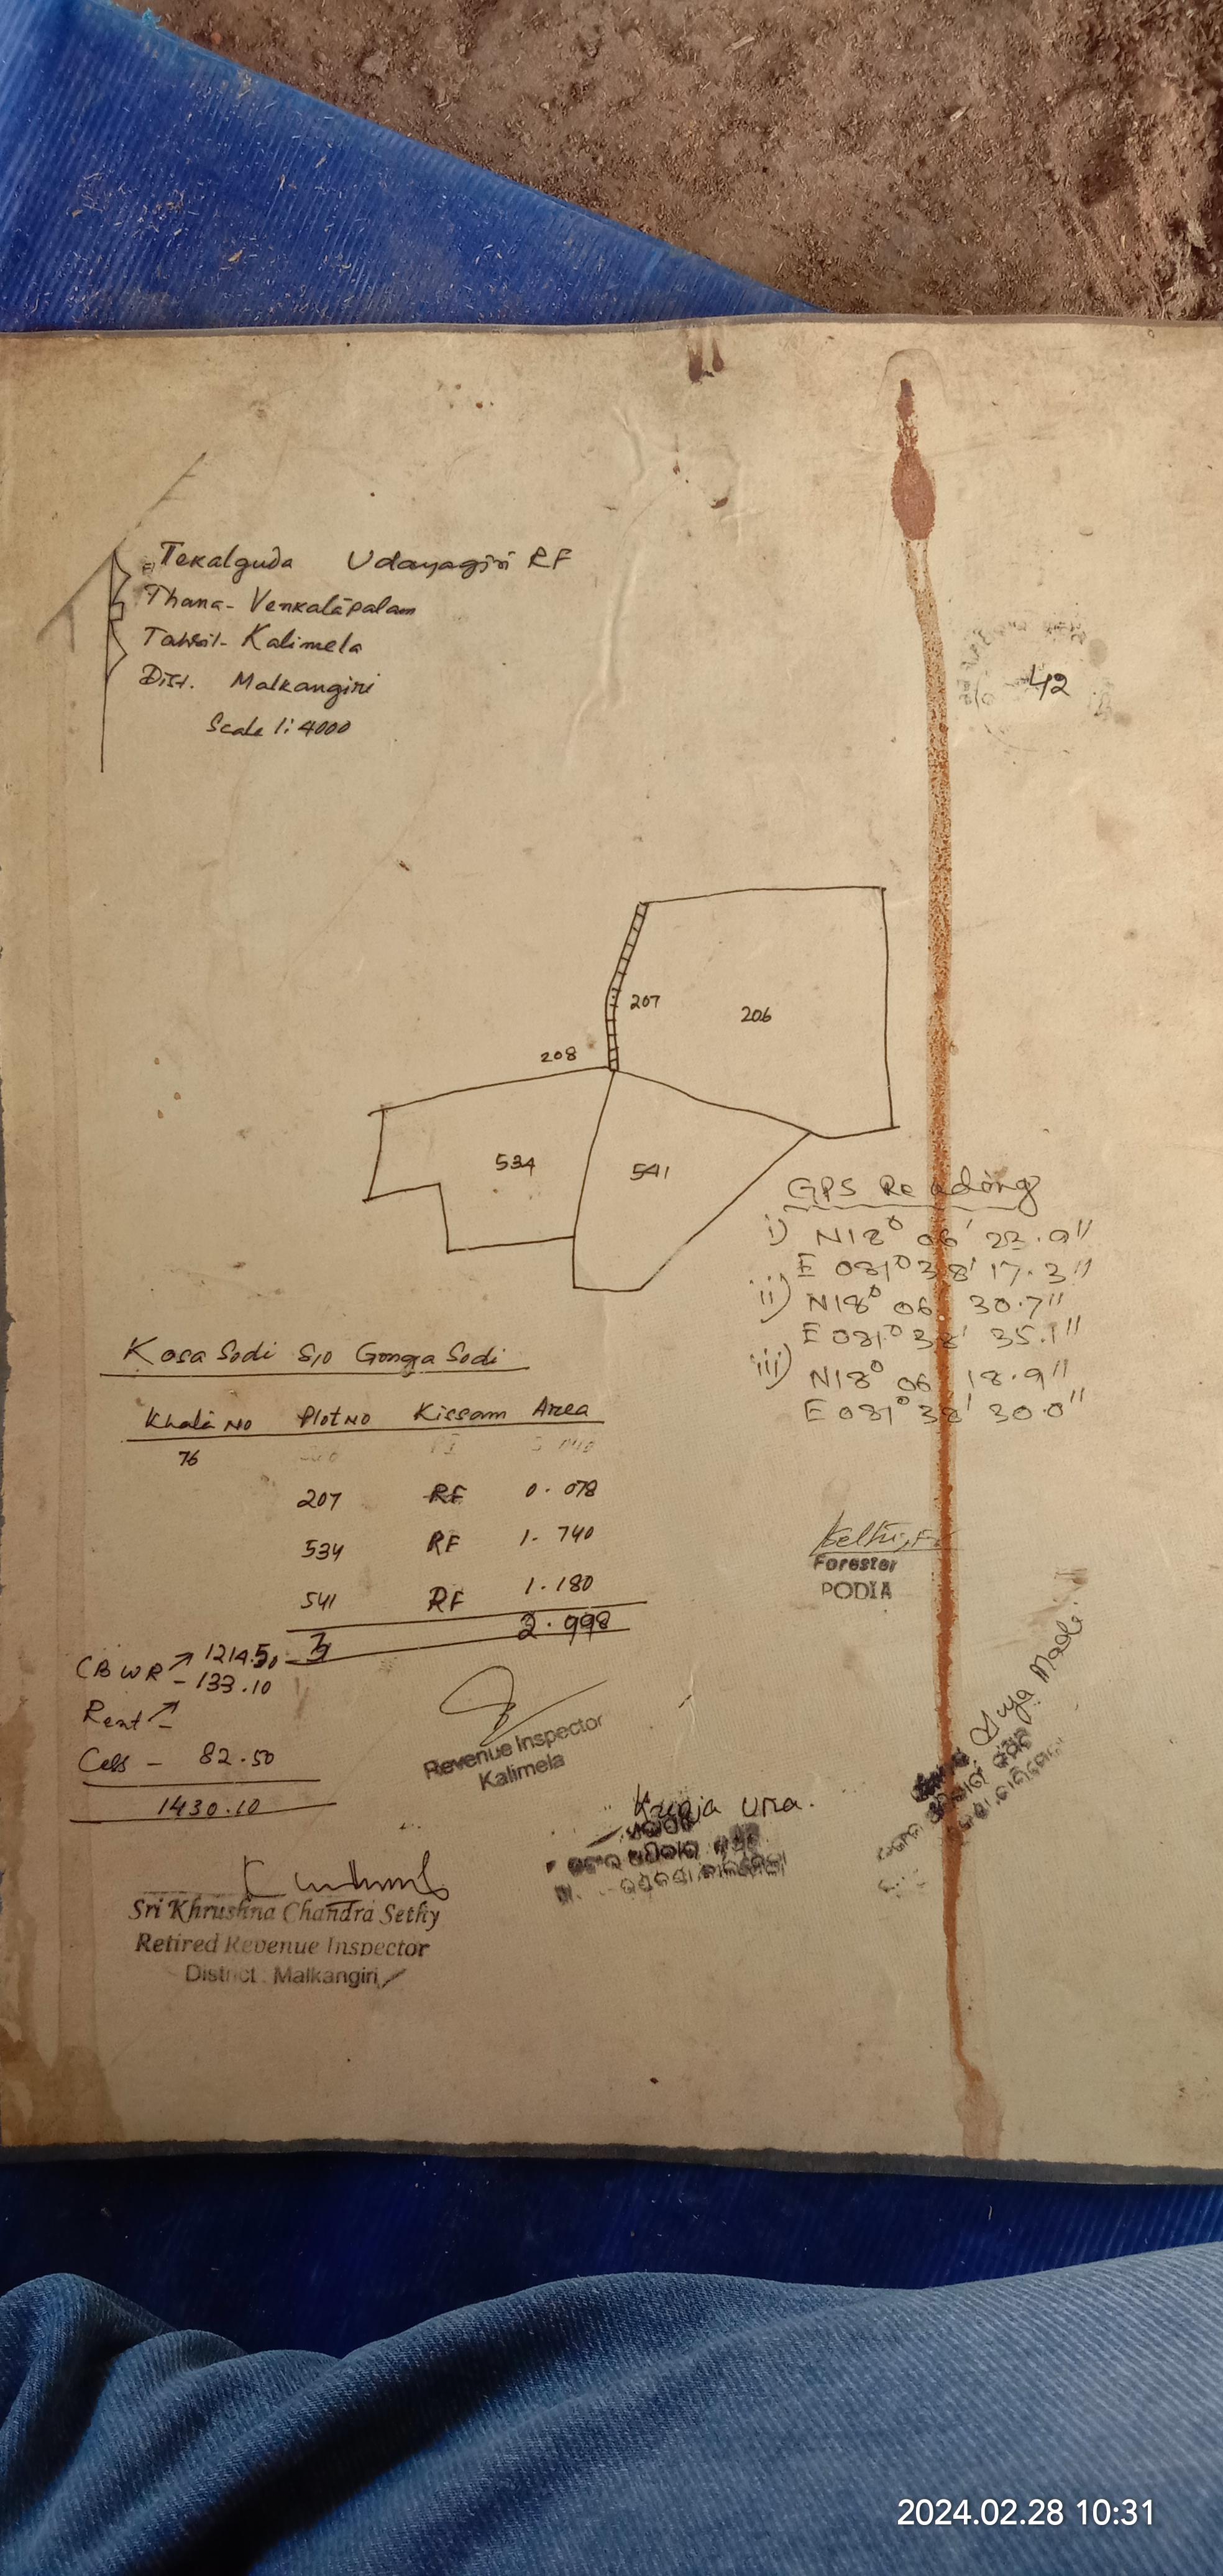 Tekalguda Udayagiri RF
Thana- Venkatapalam
Tahsil- Kalimela
Dist. Malkangiri
Scale 1:4000
42
207
206
208
534
541
GPS Reading
i) N18° 06' 23.9"
E 081° 38' 17.3"
ii) N18° 06 30.7"
E 081° 38' 35.1"
iii) N18° 06 18.9"
E 081° 38' 30.0"
Kosa Sodi S/o Gongra Sodi
Khata No Plot No Kissam Area
76
207 RF 0.078
534 RF 1.740
541 RF 1.180
3 2.998
CBWR 1214.50
- 133.10
Rent -
Cess - 82.50
1430.10
Forester
PODIA
Revenue Inspector
Kalimela
Kunja Uma.
Madi
Sri Khrushna Chandra Sethy
Retired Revenue Inspector
District : Malkangiri
2024.02.28 10:31